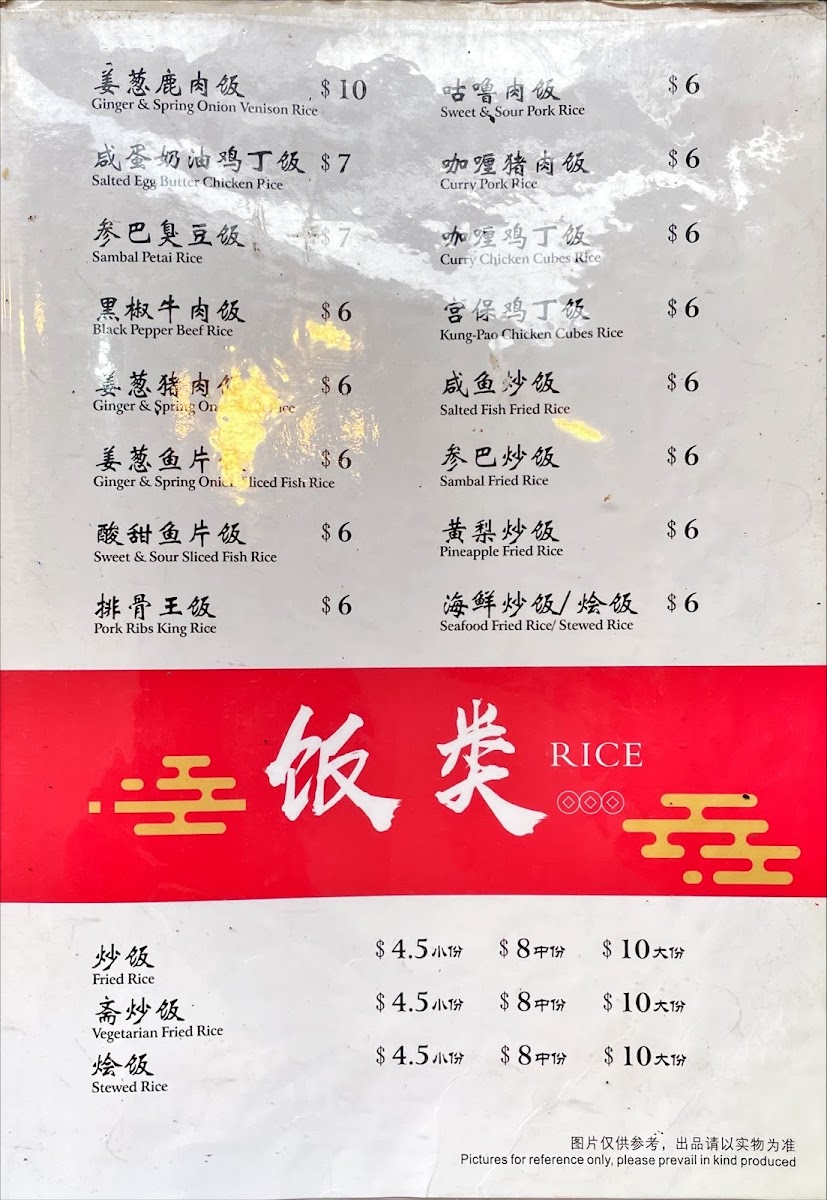 姜葱鹿肉饭 $10
Ginger & Spring Onion Venison Rice
咸蛋奶油鸡丁饭 $7
Salted Egg Butter Chicken Rice
参巴臭豆饭 $7
Sambal Petai Rice
黑椒牛肉饭 $6
Black Pepper Beef Rice
姜葱猪肉饭 $6
Ginger & Spring
姜葱鱼片 $6
Ginger & Spring Onion Sliced Fish Rice
酸甜鱼片饭 $6
Sweet & Sour Sliced Fish Rice
排骨王饭 $6
Pork Ribs King Rice
咕噜肉饭 $6
Sweet & Sour Pork Rice
咖喱猪肉饭 $6
Curry Pork Rice
咖喱鸡丁饭 $6
Curry Chicken Cubes Rice
宫保鸡丁饭 $6
Kung-Pao Chicken Cubes Rice
咸鱼炒饭 $6
Salted Fish Fried Rice
参巴炒饭 $6
Sambal Fried Rice
黄梨炒饭 $6
Pineapple Fried Rice
海鲜炒饭/烩饭 $6
Seafood Fried Rice/ Stewed Rice
饭类 RICE
炒饭 $4.5小份 $8中份 $10大份
Fried Rice
斋炒饭 $4.5小份 $8中份 $10大份
Vegetarian Fried Rice
烩饭 $4.5小份 $8中份 $10大份
Stewed Rice
图片仅供参考，出品请以实物为准
Pictures for reference only, please prevail in kind produced